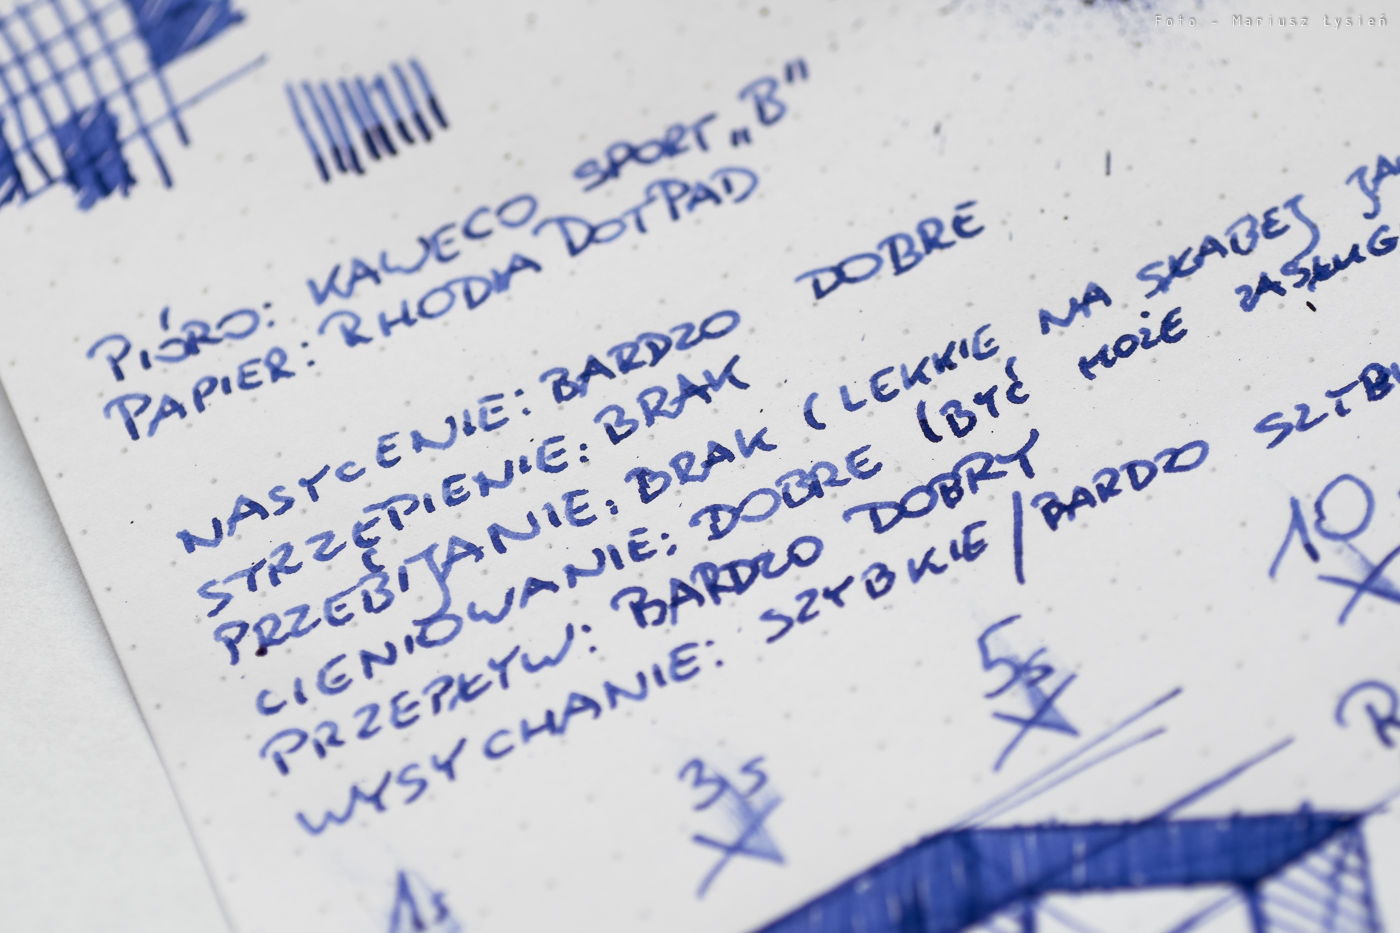 Foto - Mariusz Łysień
PIÓRO: KAWECO SPORT „B"
PAPIER: RHODIA DOTPAD
NASYCENIE: BARDZO DOBRE
STRZĘPIENIE: BRAK
PRZEBIJANIE: BRAK (LEKKIE NA SKABEJ
CIENIOWANIE: DOBRE (BYĆ MOŻE
PRZEPŁYW: BARDZO DOBRY
WYSYCHANIE: SZYBKIE / BARDZO
10
5s
3s
1s